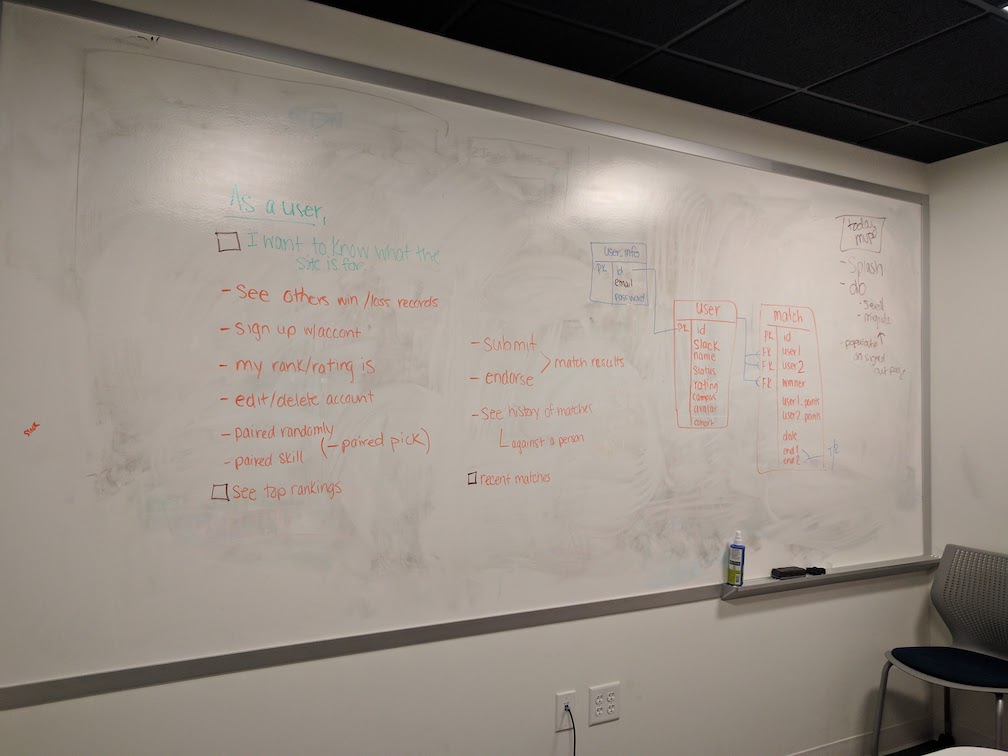 As a user,
I want to know what the
site is for.
- See others win/loss records
- Sign up w/accont
- my rank/rating is
- edit/delete account
- paired randomly
(-paired pick)
- paired skill
See top rankings
- submit
- endorse
match results
- See history of matches
against a person
recent matches
user_info
PK id
email
password
user
PK id
slack
name
status
rating
campus
avatar
match
PK id
FK user1
FK user2
FK winner
user1_points
user2_points
date
end1
end2
today
must
- Splash
- db
- seed
- migrate